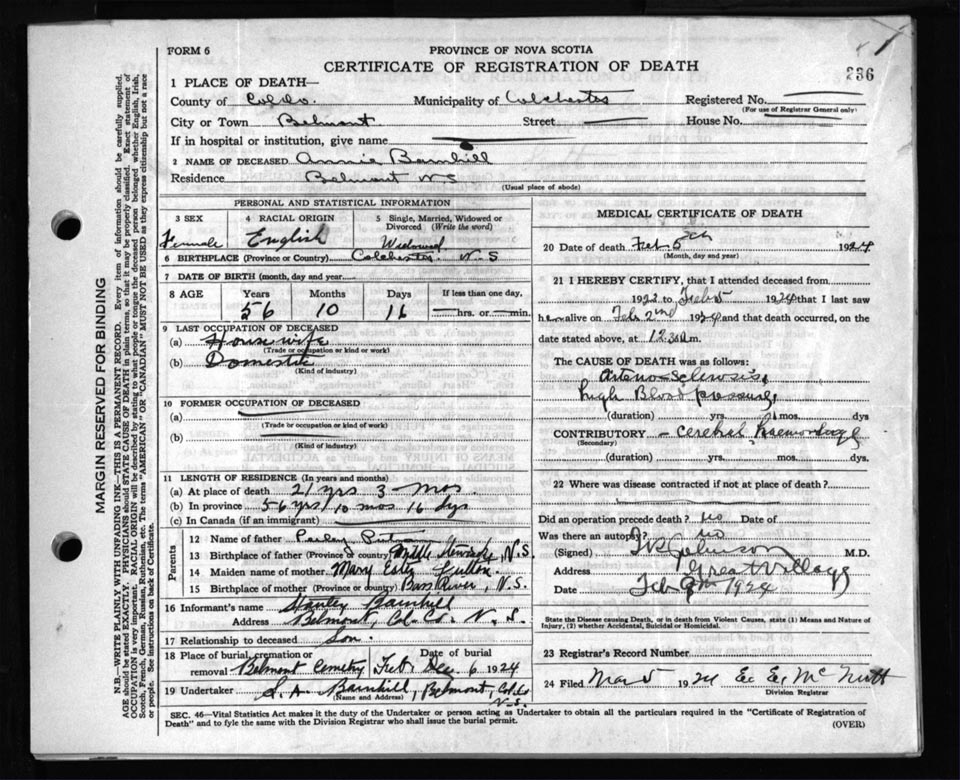 FORM 6
PROVINCE OF NOVA SCOTIA
CERTIFICATE OF REGISTRATION OF DEATH
236
1 PLACE OF DEATH—
County of Col. Co. Municipality of Colchester Registered No.
(For use of Registrar General only)
City or Town Belmont Street House No.
If in hospital or institution, give name
2 NAME OF DECEASED Annie Barnhill
Residence Belmont N S
(Usual place of abode)
PERSONAL AND STATISTICAL INFORMATION
3 SEX Female
4 RACIAL ORIGIN English
5 Single, Married, Widowed or Divorced (Write the word) Widowed
6 BIRTHPLACE (Province or Country) Colchester N. S
7 DATE OF BIRTH (month, day and year)
8 AGE Years Months Days If less than one day,
56 10 16 hrs. or min.
9 LAST OCCUPATION OF DECEASED
(a) House wife
(Trade or occupation or kind or work)
(b) Domestic
(Kind of industry)
10 FORMER OCCUPATION OF DECEASED
(a)
(Trade or occupation or kind of work)
(b)
(Kind of industry)
11 LENGTH OF RESIDENCE (In years and months)
(a) At place of death 21 yrs 3 mos.
(b) In province 56 yrs 10 mos 16 dys
(c) In Canada (if an immigrant)
Parents
12 Name of father
13 Birthplace of father (Province or country) N. S.
14 Maiden name of mother Mary Ester Fulton
15 Birthplace of mother (Province or country) Bass River, N. S.
16 Informant's name Stanley Barnhill
Address Belmont, Col. Co. N. S.
17 Relationship to deceased Son.
18 Place of burial, cremation or removal Belmont Cemetry Date of burial Feb 6 1924
19 Undertaker S. A. Barnhill, Belmont, Col. Co N.S.
(Name and Address)
MEDICAL CERTIFICATE OF DEATH
20 Date of death Feb 5th 1924
(Month, day and year)
21 I HEREBY CERTIFY, that I attended deceased from
1923 to Feb 5 1924 that I last saw
her alive on Feb 2nd 1924 and that death occurred, on
date stated above, at 12.30 m.
The CAUSE OF DEATH was as follows:
Arterio-Sclerosis,
high Blood pressure,
(duration) yrs. mos. dys
CONTRIBUTORY - cerebral haemorrhage
(Secondary)
(duration) yrs. mos. dys.
22 Where was disease contracted if not at place of death?
Did an operation precede death? no Date of
Was there an autopsy? no
(Signed) Johnson M.D.
Address Great Village
Date Feb 9th 1924
State the Disease causing Death, or in death from Violent Causes, state (1) Means and Nature of Injury, (2) whether Accidental, Suicidal or Homicidal.
23 Registrar's Record Number
24 Filed Mar 5 1924 McNutt
Division Registrar
SEC. 46—Vital Statistics Act makes it the duty of the Undertaker or person acting as Undertaker to obtain all the particulars required in the "Certificate of Registration of
Death" and to fyle the same with the Division Registrar who shall issue the burial permit.
(OVER)
MARGIN RESERVED FOR BINDING
N.B.—WRITE PLAINLY WITH UNFADING INK—THIS IS A PERMANENT RECORD. Every item of information should be carefully supplied.
AGE should be stated EXACTLY. PHYSICIANS should STATE CAUSE OF DEATH, in plain terms, so that it may be properly classified. Exact statement of
OCCUPATION is very important. RACIAL ORIGIN will be described by stating to what people or tongue the deceased person belonged whether English, Irish,
Scotch, French, German, Russian, Ruthenian, etc. The terms "AMERICAN" OR "CANADIAN" MUST NOT BE USED as they express citizenship but not a race
or people. See instructions on back of Certificate.